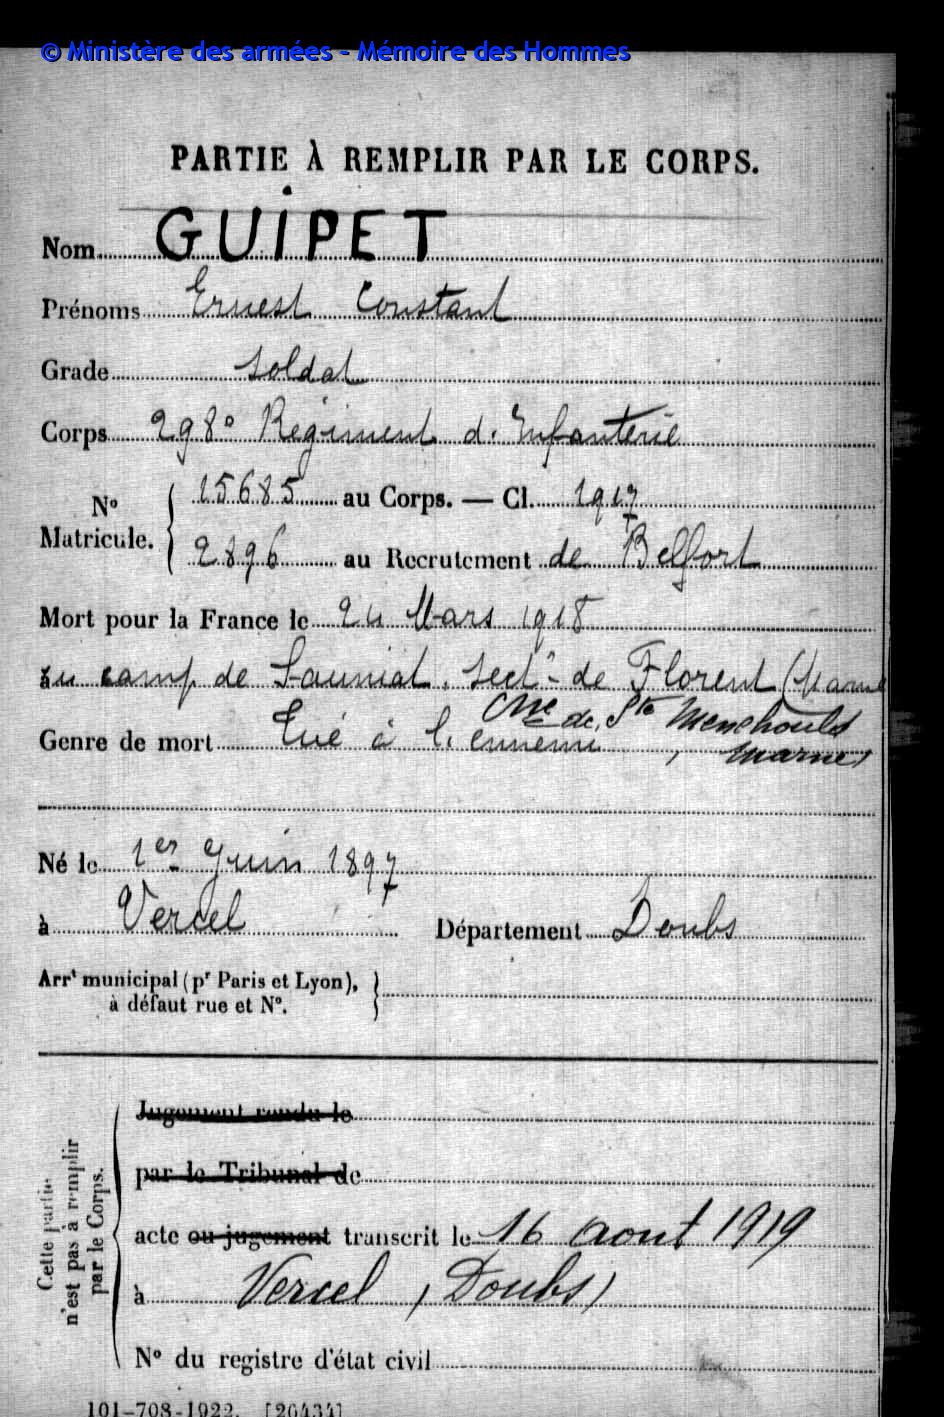 © Ministère des armées - Mémoire des Hommes
PARTIE À REMPLIR PAR LE CORPS.
Nom GUIPET
Prénoms Ernest Constant
Grade soldat
Corps 298e Régiment d'Infanterie
No Matricule. { 15685 au Corps. — Cl. 1917
2896 au Recrutement de Belfort
Mort pour la France le 24 Mars 1918
au camp de sect- de Florent (Marne
Cne de Ste Menehould
Genre de mort Tué à l'ennemi , Marne)
Né le 1er Juin 1897
à Vercel Département Doubs
Arrt municipal (pr Paris et Lyon), }
à défaut rue et No.
Cette partie n'est pas à remplir par le Corps.
Jugement rendu le
par le Tribunal de
acte ou jugement transcrit le 16 aout 1919
à Vercel (Doubs)
No du registre d'état civil
101-708-1922. [20434]